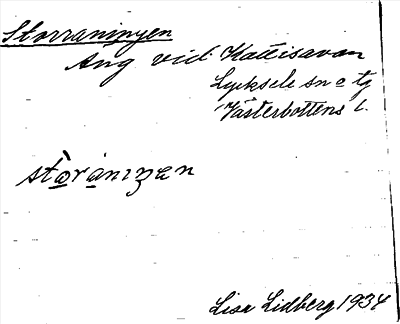 Storraningen
Äng vid Kattisavan
Lycksele sn o tg
Västerbottens l.
stòránıŋen
Lisa Lidberg 1934